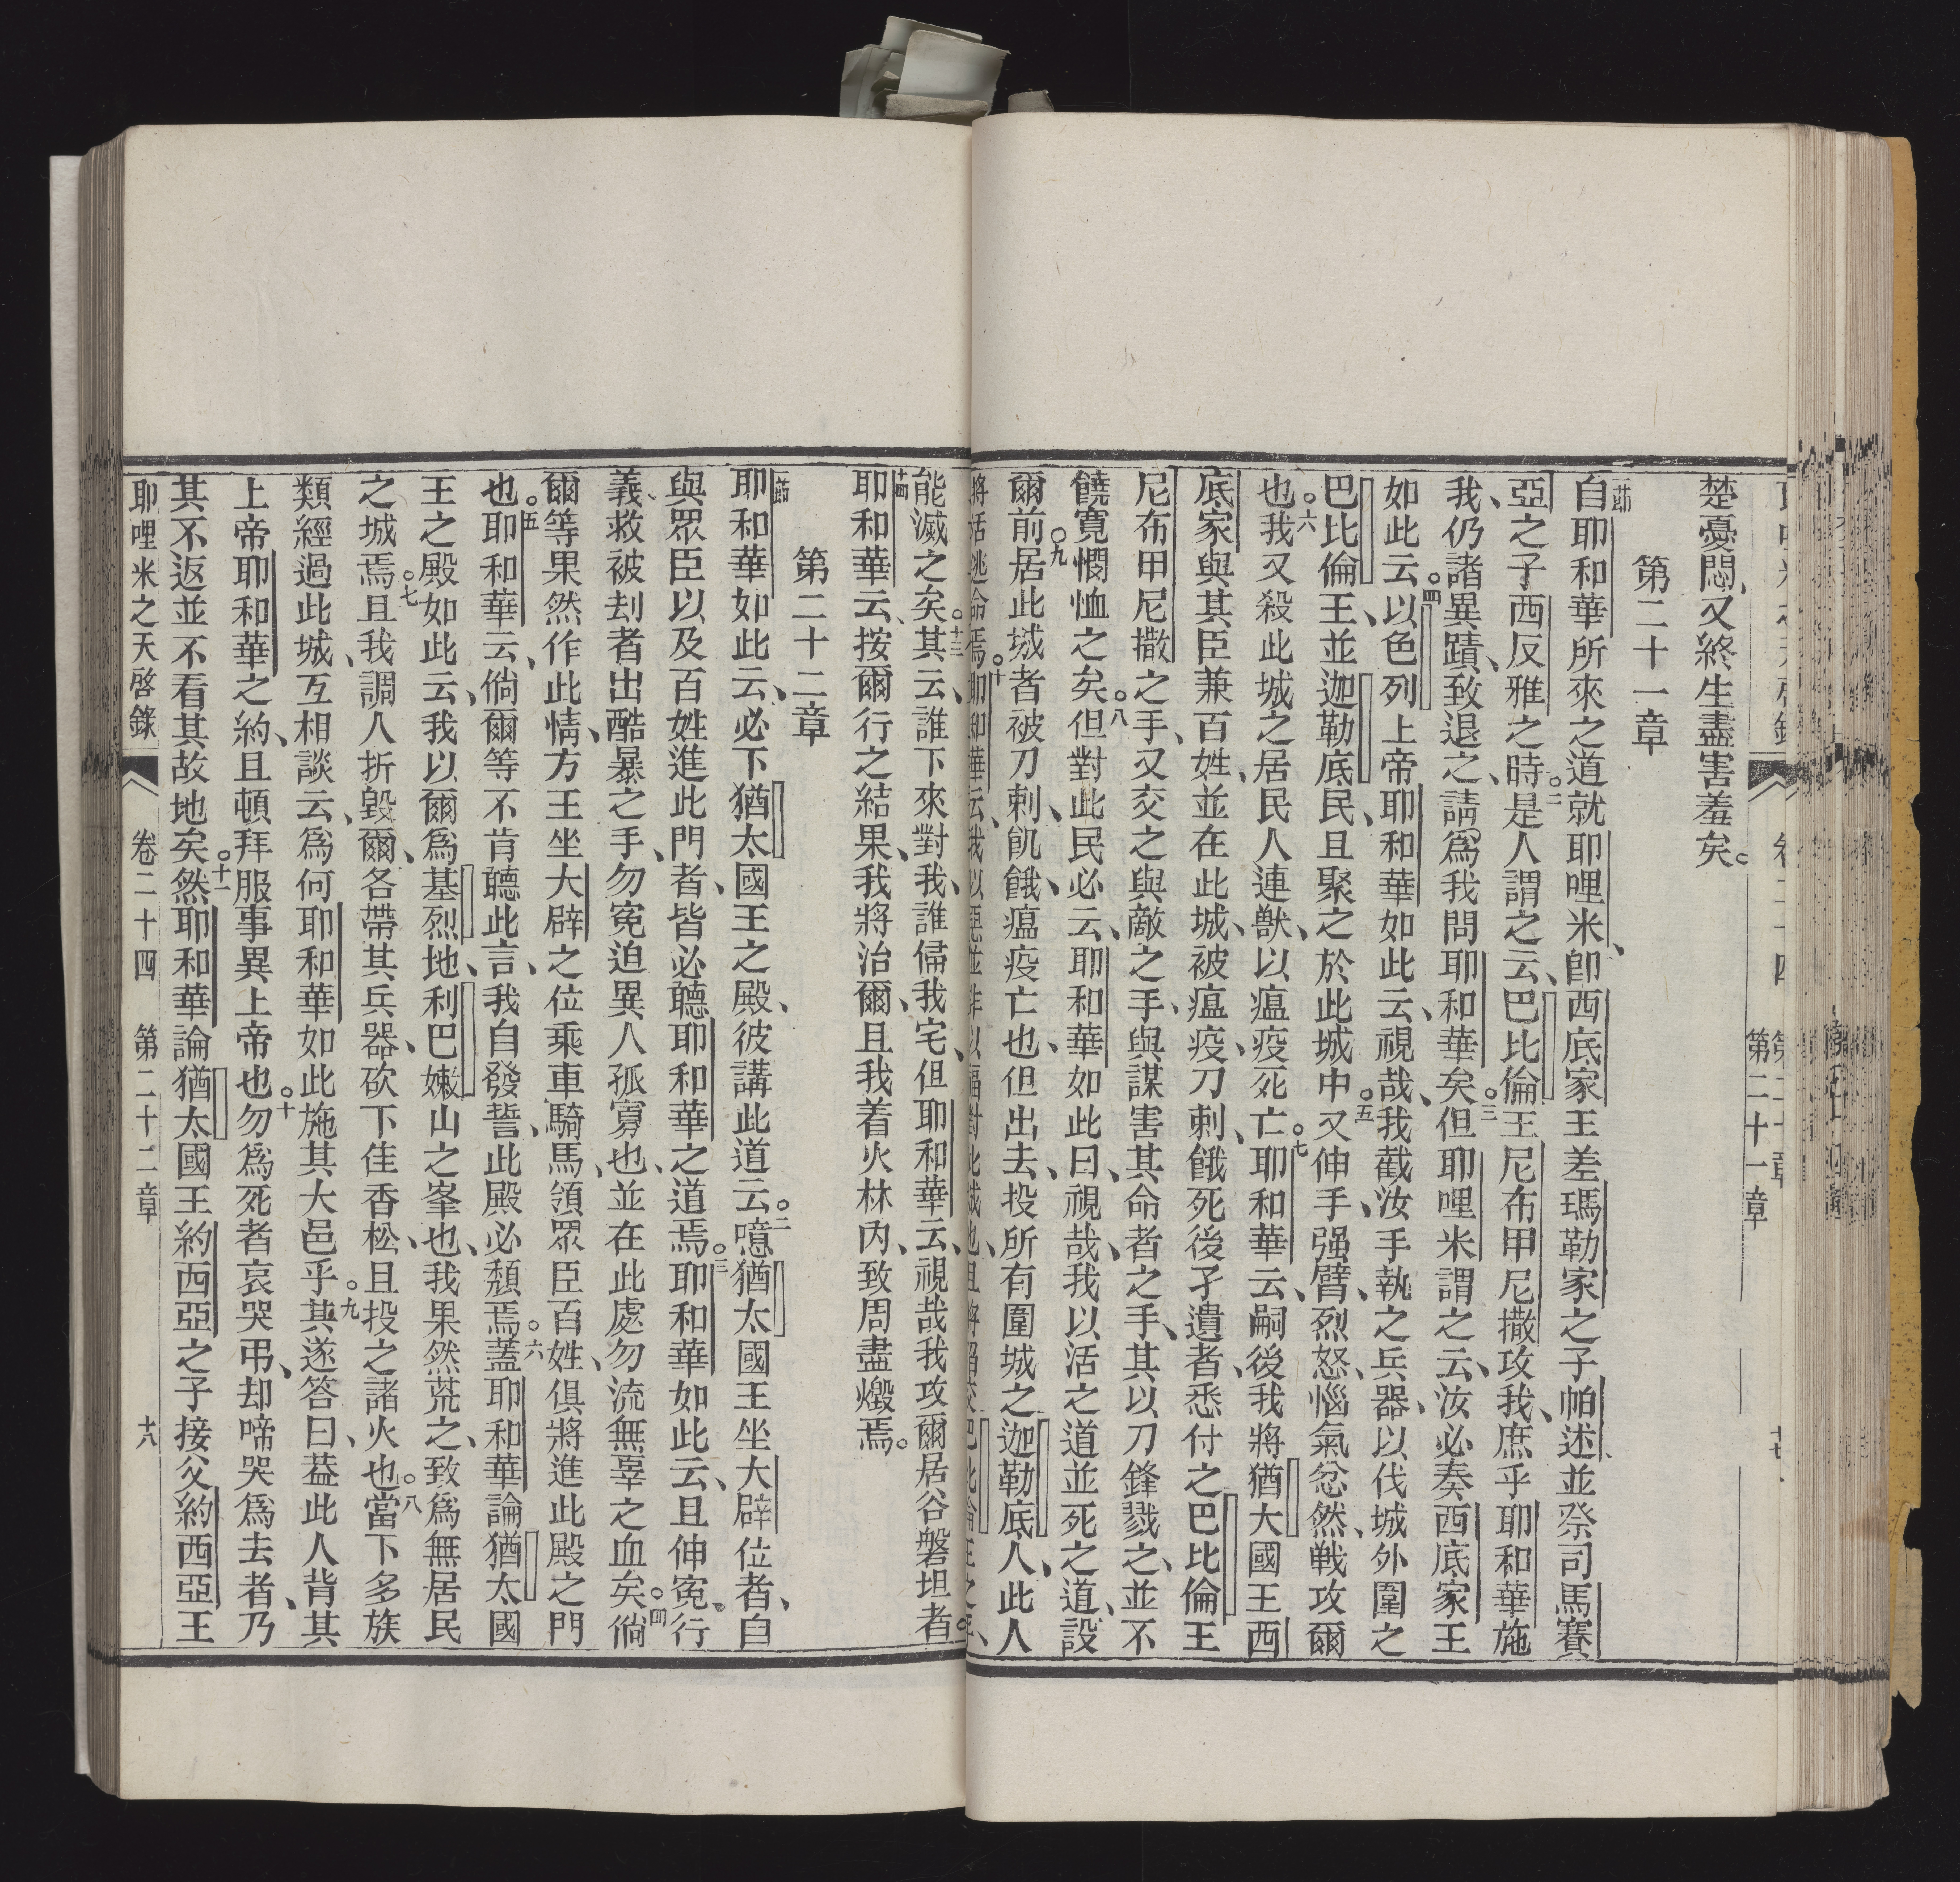 第二十一章
十七
楚憂悶、又終生盡害羞矣。
第二十一章
一節
自耶和華所來之道就耶哩米、卽西底家王差瑪勒家之子帕述、並祭司馬賽
亞之子西反雅之時。二是人謂之云、巴比倫王尼布甲尼撒攻我、庶乎耶和華施
我、仍諸異蹟、致退之、請爲我問耶和華矣。三但耶哩米謂之云、汝必奏西底家王
如此云。四以色列上帝耶和華如此云、視哉、我截汝手執之兵器、以伐城外圍之
巴比倫王、並迦勒底民、且聚之於此城中。五又伸手、强臂、烈怒、惱氣忿然、戰攻爾
也。六我又殺此城之居民人連獸、以瘟疫死亡。七耶和華云、嗣後我將猶大國王西
底家與其臣兼百姓、並在此城、被瘟疫、刀刺、餓死後孑遺者、悉付之巴比倫王
尼布甲尼撒之手、又交之與敵之手、與謀害其命者之手、其以刀鋒戮之、並不
饒寬憫恤之矣。八但對此民必云、耶和華如此曰、視哉、我以活之道並死之道、設
爾前。九居此城者被刀刺、飢餓、瘟疫亡也、但出去、投所有圍城之迦勒底人、此人
將活逃命焉。十耶和華云、我以惡並非以福對此城也、且將留交巴比倫王之手、
能滅之矣。十三其云、誰下來對我、誰偋我宅、但耶和華云、視哉我攻爾居谷磐坦者。
十四
耶和華云、按爾行之結果、我將治爾、且我着火林內、致周盡燬焉。
第二十二章
一節
耶和華如此云、必下猶太國王之殿、彼講此道云。二噫猶太國王坐大辟位者、自
與眾臣以及百姓進此門者、皆必聽耶和華之道焉。三耶和華如此云、且伸冤行
義、救被刦者出酷暴之手、勿冤迫異人孤寡也、並在此處勿流無辜之血矣。四倘
爾等果然作此情、方王坐大辟之位乘車騎馬、領眾臣百姓、俱將進此殿之門
也。五耶和華云、倘爾等不肯聽此言、我自發誓、此殿必頹焉。六蓋耶和華論猶太國
王之殿如此云、我以爾爲基烈地、利巴嫩山之峯也、我果然荒之、致爲無居民
之城焉。七且我調人折毀爾、各帶其兵器、砍下佳香松、且投之諸火也。八當下多族
類經過此城、互相談云、爲何耶和華如此施其大邑乎。九其遂答曰、葢此人背其
上帝耶和華之約、且頓拜服事異上帝也。十勿爲死者哀哭弔、却啼哭爲去者、乃
其不返並不看其故地矣。十一然耶和華論猶太國王約西亞之子接父約西亞王
耶哩米之天啓錄 卷二十四 第二十二章 十八